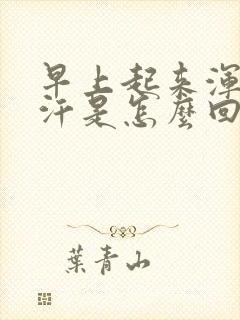 早上起来渾
汗是怎麼回
葉青山